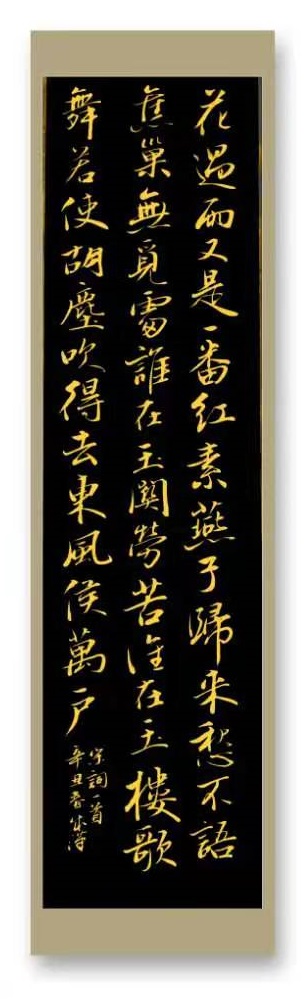 花過雨又是一番紅素燕子歸來愁不語
舊巢無覓處誰在玉關勞苦誰在玉樓歌
舞若使胡塵吹得去東風侯萬戶
宋詞一首
辛丑春